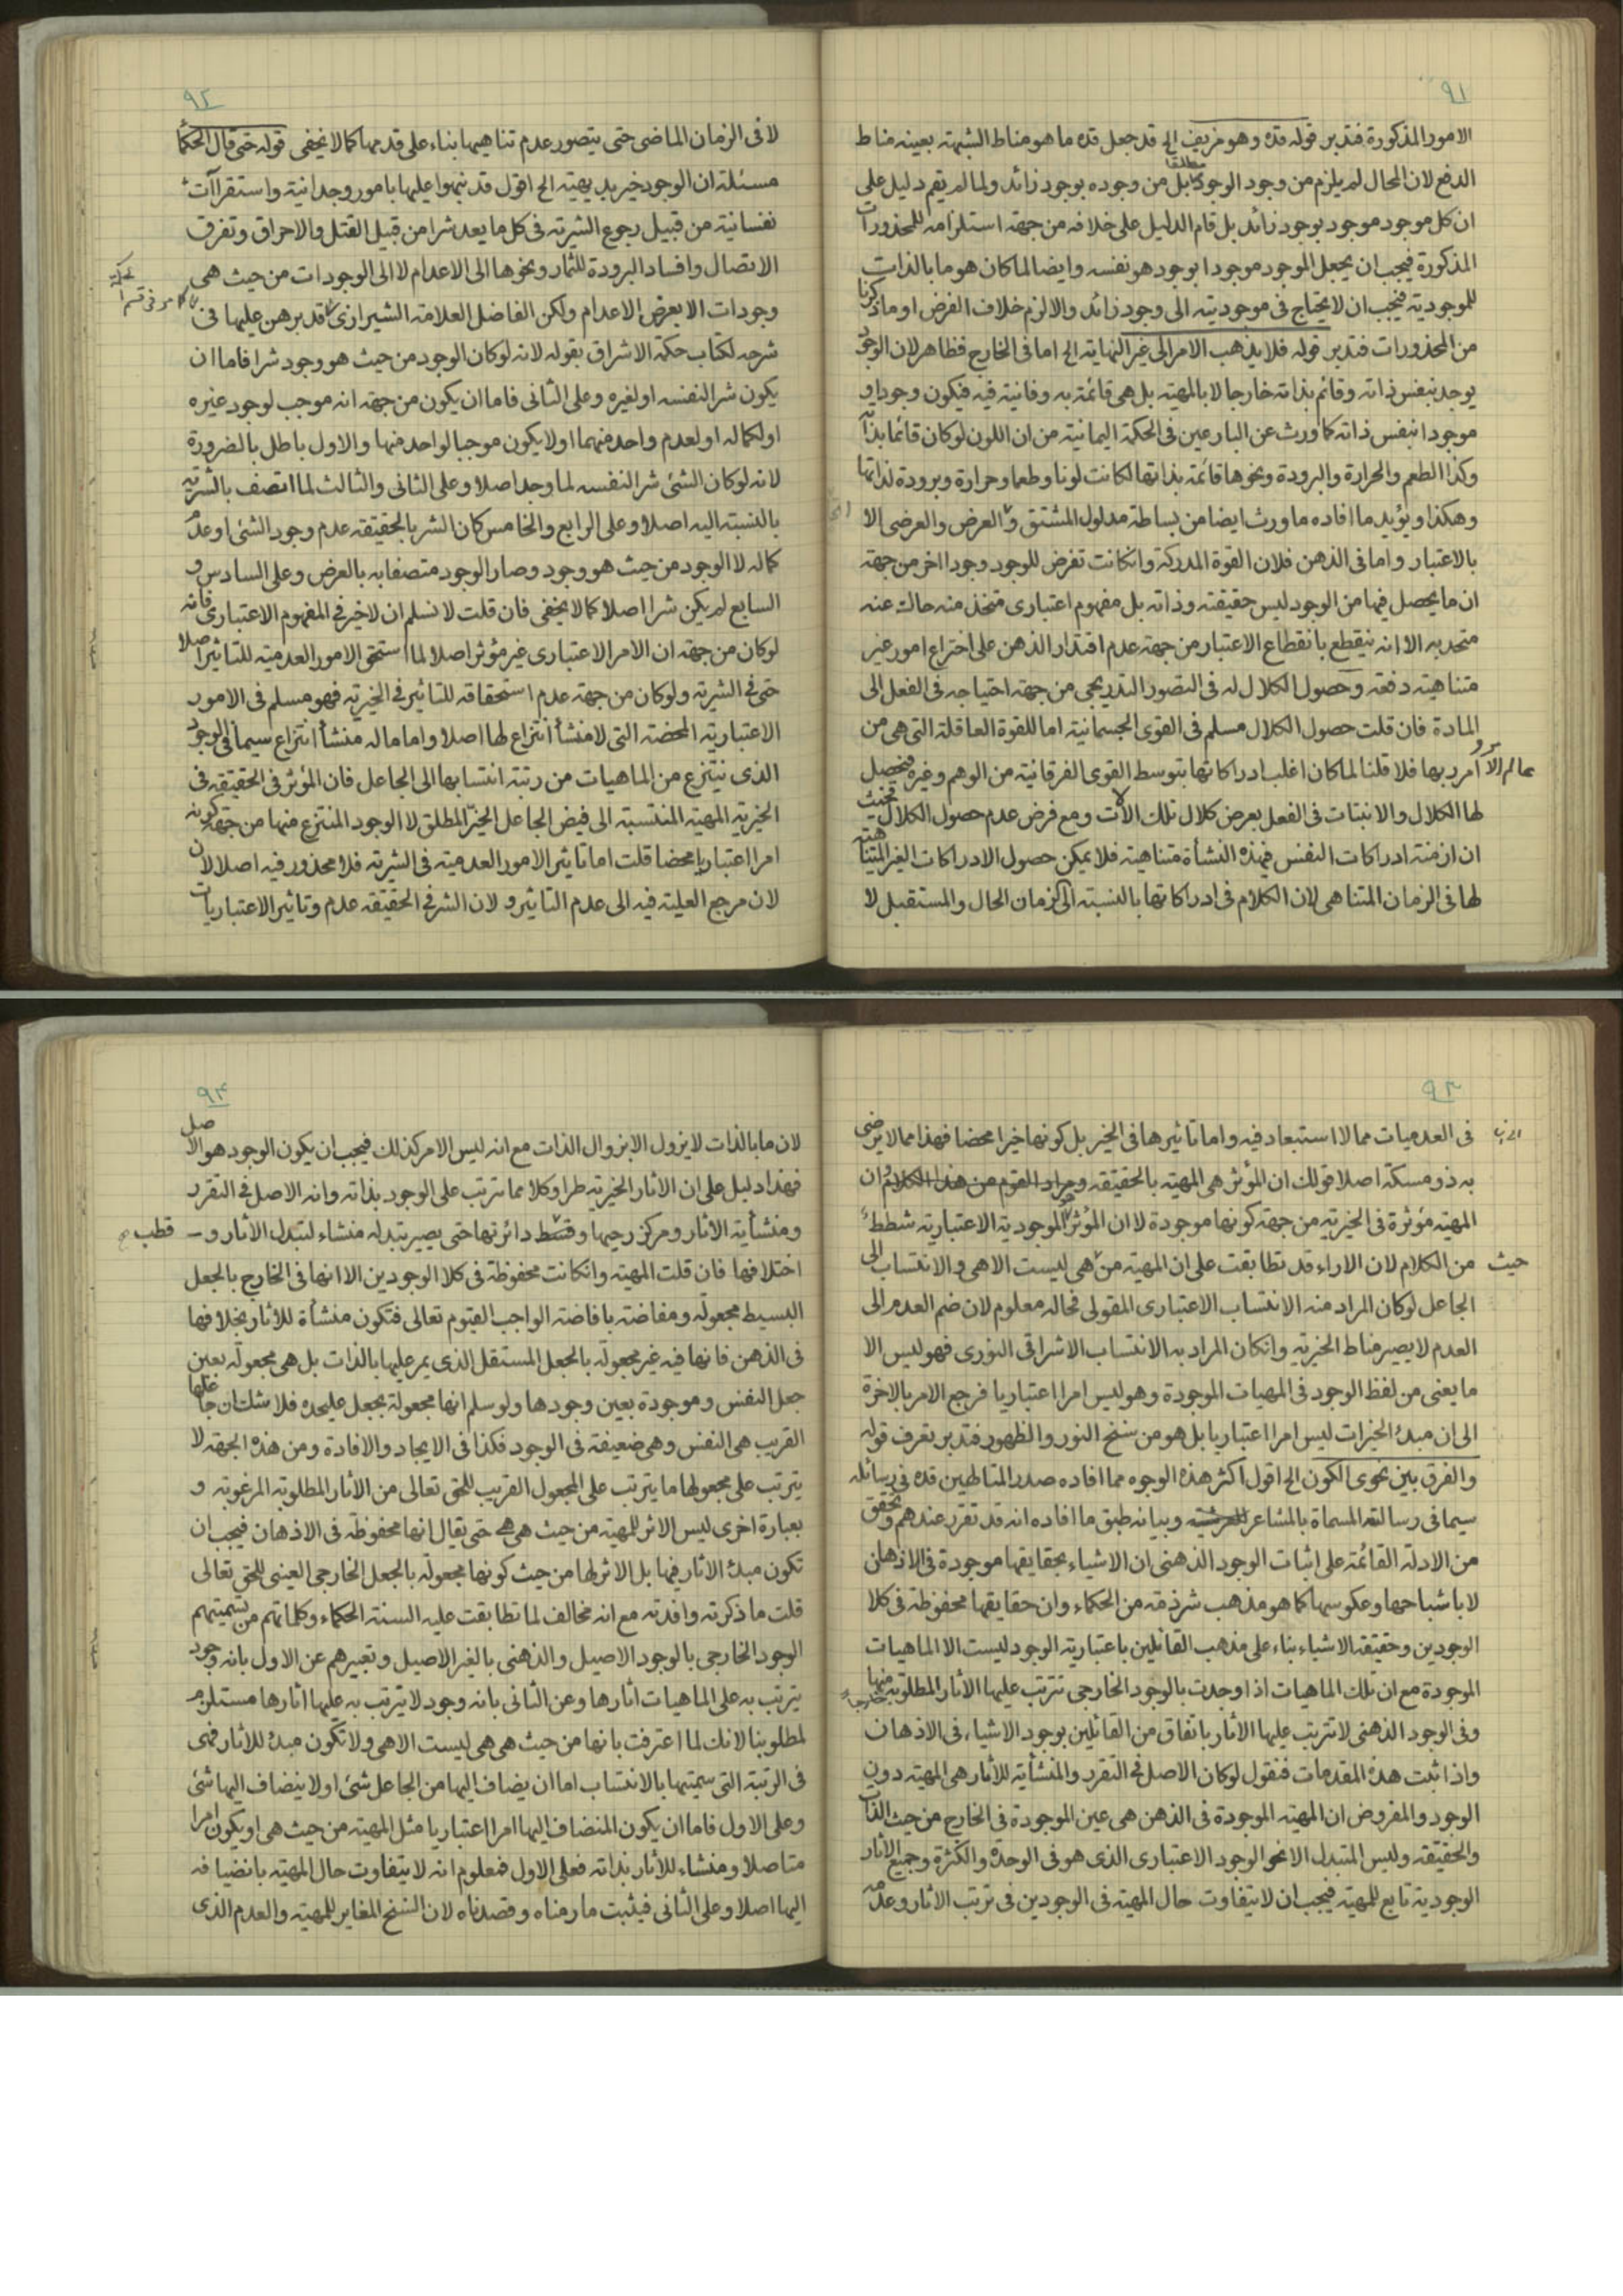 ٩١
الامور المذكورة فتدبر قوله قده وهو مزيف الخ قد جعل قده ما هو مناط الشبهته بعينه مناط
الدفع لان المحال لم يلزم من وجود الوجود مطلقا بل من وجوده بوجود زائد ولما لم يقم دليل على
ان كل موجود موجود بوجود زائد بل قام الدليل على خلافه من جهته استلزامه للمحذورات
المذكورة فيجب ان يجعل الموجود موجودا بوجود هو نفسه وايضا لما كان هو ما بالذات
للموجودية فيجب ان لا يحتاج فى موجوديته الى وجود زائد والا لزم خلاف الفرض او ما ذكرنا
من المحذورات فتدبر قوله فلا يذهب الامر الى غير النهاية الخ اما فى الخارج فظاهر لان الوجود
يوجد بنفس ذاته وقائم بذاته خارجا لا بالمهية بل هى قائمة به وفانية فيه فيكون وجودا و
موجودا بنفس ذاته كما ورث عن البارعين فى الحكمة اليمانية من ان اللون لو كان قائما بذاته
وكذا الطعم والحرارة والبرودة ونحوها قائمة بذاتها لكانت لونا وطعما وحرارة وبرودة لذاتها
وهكذا ويؤيد ما افاده ما ورث ايضا من بساطة مدلول المشتق و العرض والعرضى الا
بالاعتبار واما فى الذهن فلان القوة المدركة وانكانت تفرض للوجود وجودا اخر من جهة
ان ما يحصل فيها من الوجود ليس حقيقته وذاته بل مفهوم اعتبارى متخذ منه حاك عنه
متحد به الا انه ينقطع بانقطاع الاعتبار من جهة عدم اقتدار الذهن على اختراع امور غير
متناهية دفعة وحصول الكلال له فى التصور التدريجى من جهة احتياجه فى الفعل الى
المادة فان قلت حصول الكلال مسلم فى القوى الجسمانية اما للقوة العاقلة التى هى من
عالم الامر وبها فلا قلنا لما كان اغلب ادراكاتها بتوسط القوى الفرقانية من الوهم وغيره فيحصل
لها الكلال والانبتات فى الفعل بعرض كلال تلك الالات ومع فرض عدم حصول الكلال فحيث
ان ازمنة ادراكات النفس فى هذه النشأة متناهية فلا يمكن حصول الادراكات الغير المتناهية
لها فى الزمان المتناهى لان الكلام فى ادراكاتها بالنسبة الى زمان الحال والمستقبل لا
٩٢
لا فى الزمان الماضى حتى يتصور عدم تناهيها بناء على قدمها كما لا يخفى قوله حتى قال الحكماء
مسئلة ان الوجود خير بديهية الخ اقول قد نبهوا عليها بامور وجدانية واستقراآت
نفسانية من قبيل رجوع الشرية فى كل ما يعد شرا من قبيل القتل والاحراق وتفرق
الاتصال وافساد البرودة للثمار ونحوها الى الاعدام لا الى الوجودات من حيث هى
وجودات الا بعرض الاعدام ولكن الفاضل العلامة الشيرازى قد برهن عليها فى
شرحه لكتاب حكمة الاشراق بقوله لانه لو كان الوجود من حيث هو وجود شرا فاما ان
يكون شرا لنفسه او لغيره وعلى الثانى فاما ان يكون من جهة انه موجب لوجود غيره
او لكماله او لعدم واحد منهما او لا يكون موجبا لواحد منها والاول باطل بالضرورة
لانه لو كان الشئ شرا لنفسه لما وجد اصلا وعلى الثانى والثالث لما اتصف بالشرية
بالنسبة اليه اصلا وعلى الرابع والخامس كان الشر بالحقيقة عدم وجود الشئ او عدم
كماله لا الوجود من حيث هو وجود وصار الوجود متصفا به بالعرض وعلى السادس و
السابع لم يكن شرا اصلا كما لا يخفى فان قلت لا نسلم ان لا خير فى المفهوم الاعتبارى فانه
لو كان من جهة ان الامر الاعتبارى غير مؤثر اصلا لما استحق الامور العدمية للتاثير اصلا
حتى فى الشرية ولو كان من جهة عدم استحقاقه للتاثير فى الخيرية فهو مسلم فى الامور
الاعتبارية المحضة التى لا منشأ انتزاع لها اصلا واما ما له منشأ انتزاع سيما فى الوجود
الذى ينتزع من الماهيات من رتبة انتسابها الى الجاعل فان المؤثر فى الحقيقة فى
الخيرية المهية المنتسبة الى فيض الجاعل الخير المطلق لا الوجود المنتزع منها من جهة كونه
امرا اعتباريا محضا قلت اما تاثير الامور العدمية فى الشرية فلا محذور فيه اصلا لان
لان مرجع العلية فيه الى عدم التاثير و لان الشر فى الحقيقة عدم وتاثير الاعتباريات
كما مر فى قسم
٩٣
فى العدميات مما لا استبعاد فيه واما تاثيرها فى الخير بل كونها خيرا محضا فهذا مما لا يرضى
به ذو مسكة اصلا قولك ان المؤثر هى المهية بالحقيقة ومراد القوم من هذا الكلام ان
المهية مؤثرة فى الخيرية من جهة كونها موجودة لا ان المؤثر الموجودية الاعتبارية شطط
من الكلام لان الاراء قد تطابقت على ان المهية من حيث هى ليست الا هى والانتساب الى
الجاعل لو كان المراد منه الانتساب الاعتبارى المقولى فحاله معلوم لان ضم العدم الى
العدم لا يصير مناط الخيرية وانكان المراد به الانتساب الاشراقى النورى فهو ليس الا
ما يعنى من لفظ الوجود فى المهيات الموجودة وهو ليس امرا اعتباريا فرجع الامر بالاخرة
الى ان مبدء الخيرات ليس امرا اعتباريا بل هو من سنخ النور والظهور فتدبر تعرف قوله
والفرق بين نحوى الكون الخ اقول اكثر هذه الوجوه مما افاده صدر المتالهين قده فى رسائله
سيما فى رسالته المسماة بالمشاعر وبيانه طبق ما افاده انه قد تقرر عندهم وتحقق
من الادلة القائمة على اثبات الوجود الذهنى ان الاشياء بحقايقها موجودة فى الاذهان
لا باشباحها وعكوسها كما هو مذهب شرذمة من الحكماء وان حقايقها محفوظة فى كلا
الوجودين وحقيقة الاشياء بناء على مذهب القائلين باعتبارية الوجود ليست الا الماهيات
الموجودة مع ان تلك الماهيات اذا وجدت بالوجود الخارجى تترتب عليها الاثار المطلوبة منها خارجا
وفى الوجود الذهنى لا تترتب عليها الاثار باتفاق من القائلين بوجود الاشياء فى الاذهان
واذا ثبت هذه المقدمات فنقول لو كان الاصل فى التقرر والمنشأية للأثار هى المهية دون
الوجود والمفروض ان المهية الموجودة فى الذهن هى عين الموجودة فى الخارج من حيث الذات
والحقيقة وليس المتبدل الا نحو الوجود الاعتبارى الذى هو فى الوحدة والكثرة وجميع الاثار
الوجودية تابع للمهية فيجب ان لا يتفاوت حال المهية فى الوجودين فى ترتب الاثار وعدمه
٩٤
لان ما بالذات لا يزول الا بزوال الذات مع انه ليس الامر كذلك فيجب ان يكون الوجود هو الاصل
فهذا دليل على ان الاثار الخيرية طرا وكلا مما ترتب على الوجود بذاته وانه الاصل فى التقرر
ومنشأية الاثار ومركز رحيها و قطب دائرتها حتى يصير تبدله منشاء لتبدل الاثار و
اختلافها فان قلت المهية وانكانت محفوظة فى كلا الوجودين الا انها فى الخارج بالجعل
البسيط مجعولة ومفاضة بافاضة الواجب القيوم تعالى فتكون منشأة للأثار بخلافها
فى الذهن فانها فيه غير مجعولة بالجعل المستقل الذى يمر عليها بالذات بل هى مجعولة بعين
جعل النفس وموجودة بعين وجودها ولو سلم انها مجعولة بجعل عليحده فلا شك ان جاعلها
القريب هى النفس وهى ضعيفة فى الوجود فكذا فى الايجاد والافادة ومن هذه الجهة لا
يترتب على مجعولها ما يترتب على المجعول القريب للحق تعالى من الأثار المطلوبة المرغوبة و
بعبارة اخرى ليس الاثر للمهية من حيث هى هى حتى يقال انها محفوظة فى الاذهان فيجب ان
تكون مبدء الأثار فيها بل الاثر لها من حيث كونها مجعولة بالجعل الخارجى العينى للحق تعالى
قلت ما ذكرته وافدته مع انه مخالف لما تطابقت عليه السنة الحكماء وكلماتهم من تسميتهم
الوجود الخارجى بالوجود الاصيل والذهنى بالغير الاصيل وتعبيرهم عن الاول بانه وجود
يترتب به على الماهيات آثارها وعن الثانى بانه وجود لا يترتب به عليها اثارها مستلزم
لمطلوبنا لانك لما اعترفت بانها من حيث هى هى ليست الا هى ولا تكون مبدء للأثار فهى
فى الرتبة التى سميتها بالانتساب اما ان يضاف اليها من الجاعل شئ او لا ينضاف اليها شئ
وعلى الاول فاما ان يكون المنضاف اليها امرا اعتباريا مثل المهية من حيث هى او يكون امرا
متاصلا ومنشاء للأثار بذاته فعلى الاول فمعلوم انه لا يتفاوت حال المهية بانضيافه
اليها اصلا وعلى الثانى فيثبت ما رمناه وقصدناه لان السنخ المغاير للمهية والعدم الذى